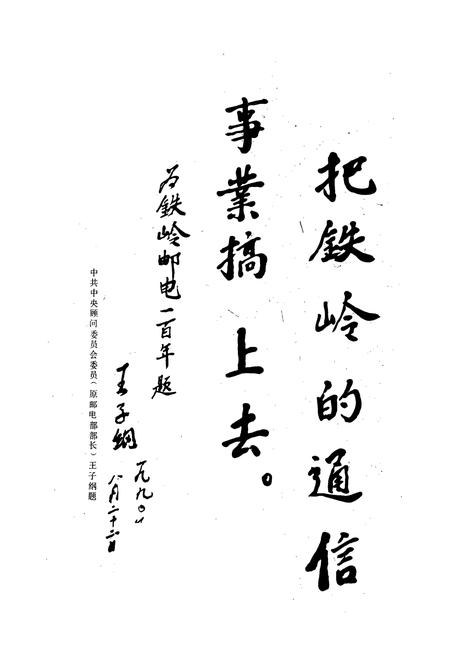 把铁岭的通信
事業搞上去。
为铁岭邮电一百年题
王子纲
一九九〇、
八月二十二日
中共中央顾问委员会委员（原邮电部部长）王子纲题